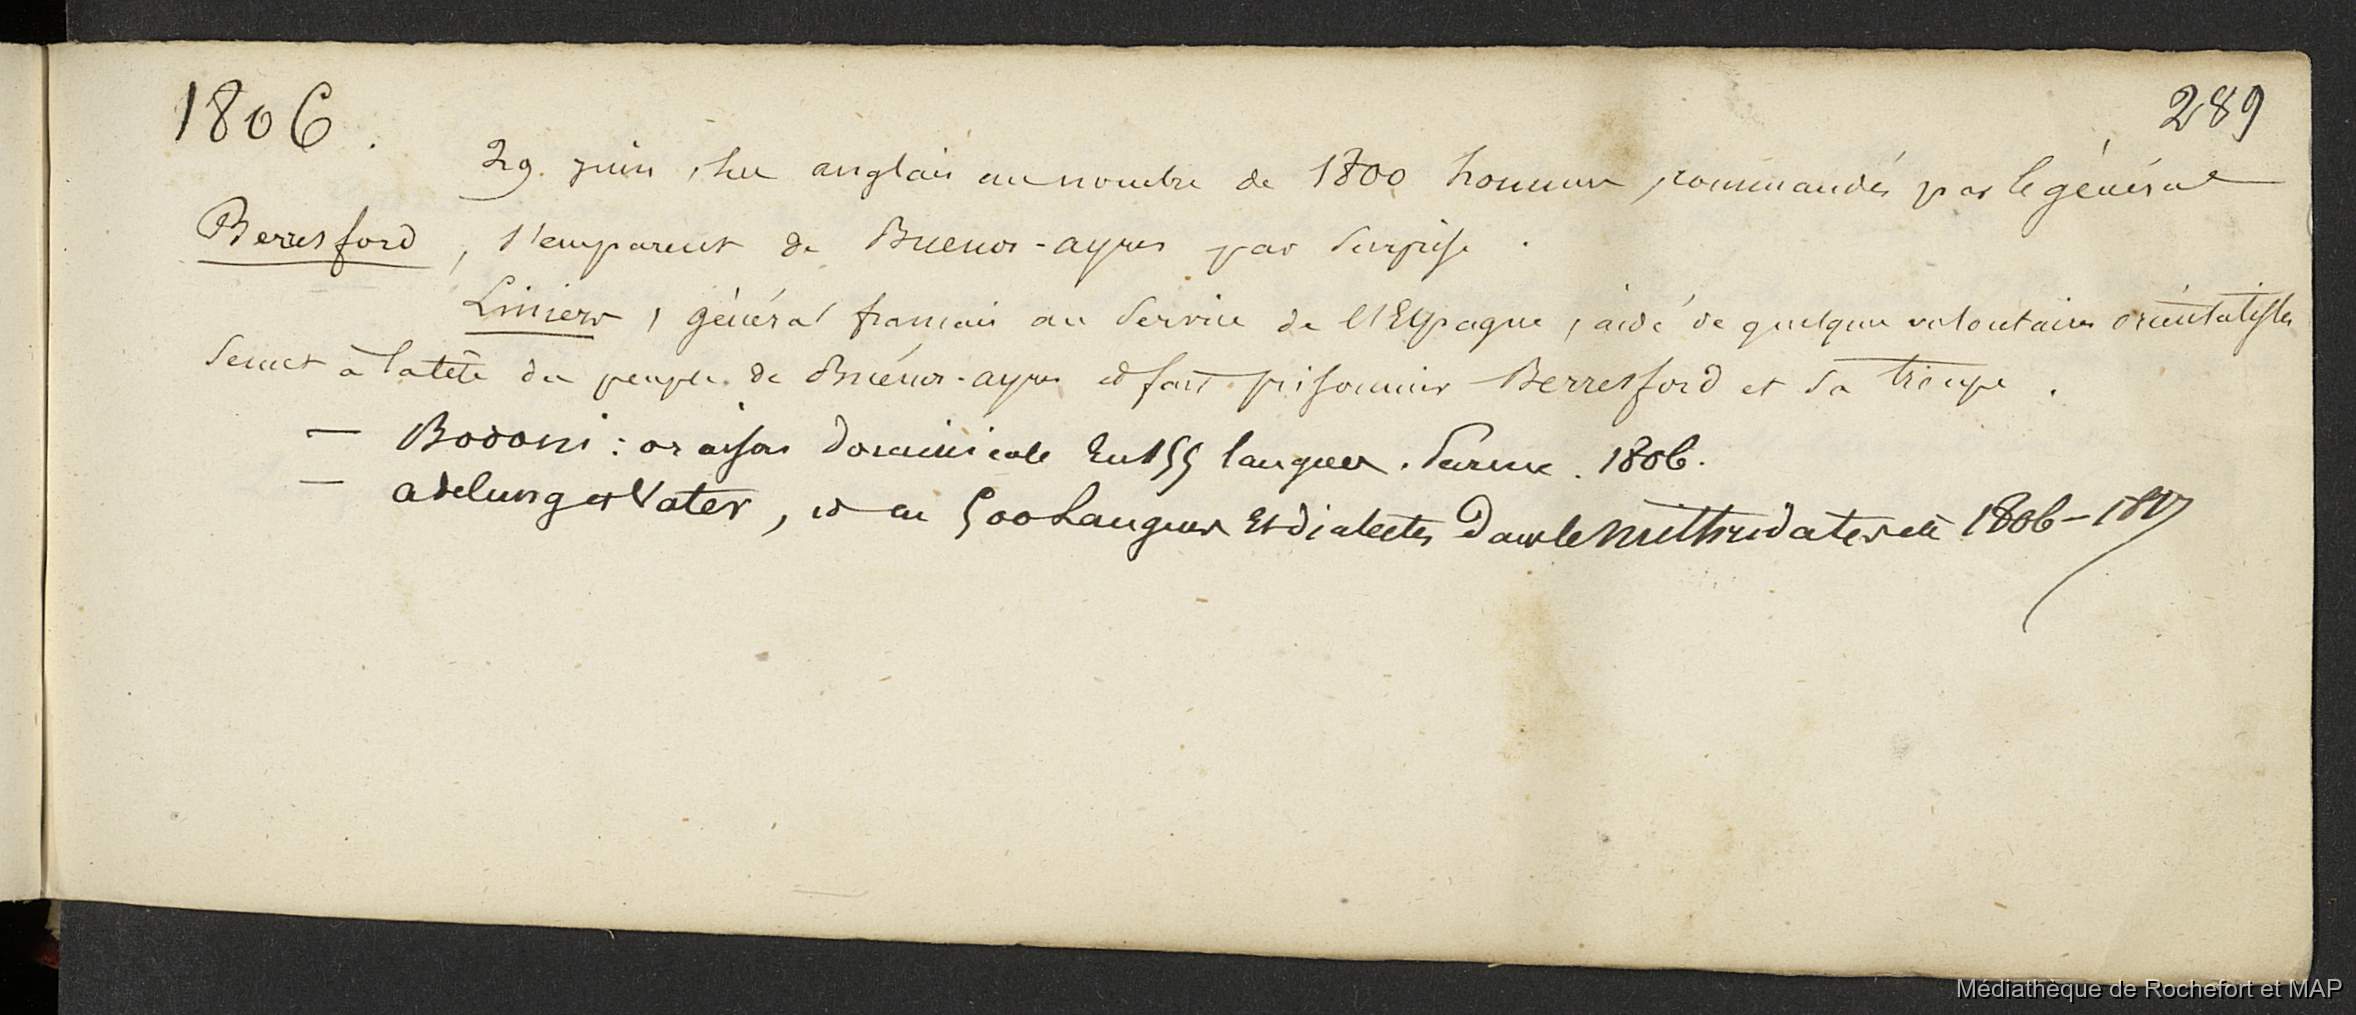 1806. 289
29. juin, les anglais au nombre de 1800 hommes, commandés par le général
Berresford, s'emparent de Buenos-ayres par surprise.
Liniers, général français au service de l'Espagne, aidé de quelques volontaires orientalistes
se met à la tête du peuple de Buénos-ayres et fait prisonnier Berresford et sa troupe.
— Bodoni: oraison dominicale En 155 langues. Parme. 1806.
— adelung et Vater, id en 500 Langues Et dialectes Dans le Mithridates etc 1806-1817
Médiathèque de Rochefort et MAP